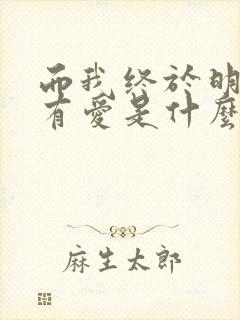 而我终於明
有愛是什麼
麻生太郎